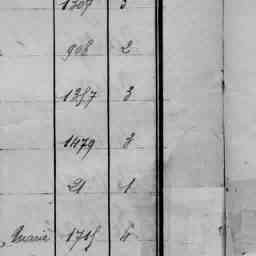 1309 3
908 2
1357 3
1479 3
21 1
Marie 1715 4